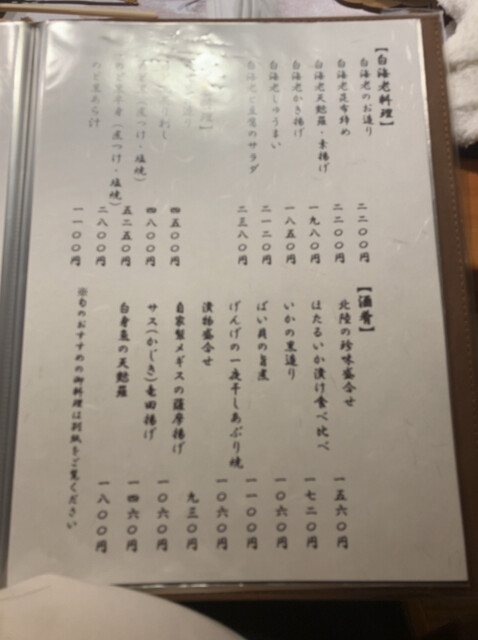 【白海老料理】
白海老のお造り 二二〇〇円
白海老昆布〆め 二二〇〇円
白海老天麩羅・素揚げ 一九八〇円
白海老かき揚げ 一八五〇円
白海老しゅうまい 二一二〇円
白海老と のサラダ 二三八〇円
料理】
造り 四五〇〇円
刺し 四八〇〇円
(煮つけ・塩焼) 五二五〇円
のど黒半身(煮つけ・塩焼) 二八〇〇円
のど黒あら汁 一一〇〇円
【酒肴】
北陸の珍味盛合せ 一五六〇円
ほたるいか漬け食べ比べ 一七二〇円
いかの黒造り 一〇六〇円
ばい貝の旨煮 一一〇〇円
げんげの一夜干しあぶり焼 一〇六〇円
漬物盛合せ 九三〇円
自家製メギスの薩摩揚げ 一〇六〇円
サス(かじき)竜田揚げ 一四六〇円
白身魚の天麩羅 一八〇〇円
※旬のおすすめの御料理は別紙をご覧ください